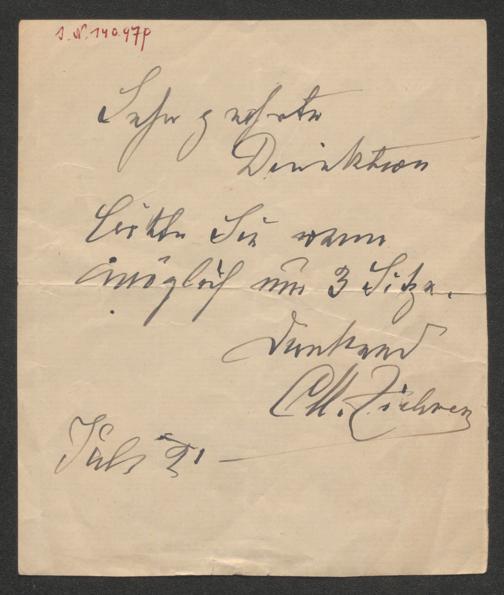 I.N. 140.47p
Sehr geehrte
Direktion
bitte Sie wenn
möglich um 3 Sitze.
Dankend
CM. Ziehrer
Juli